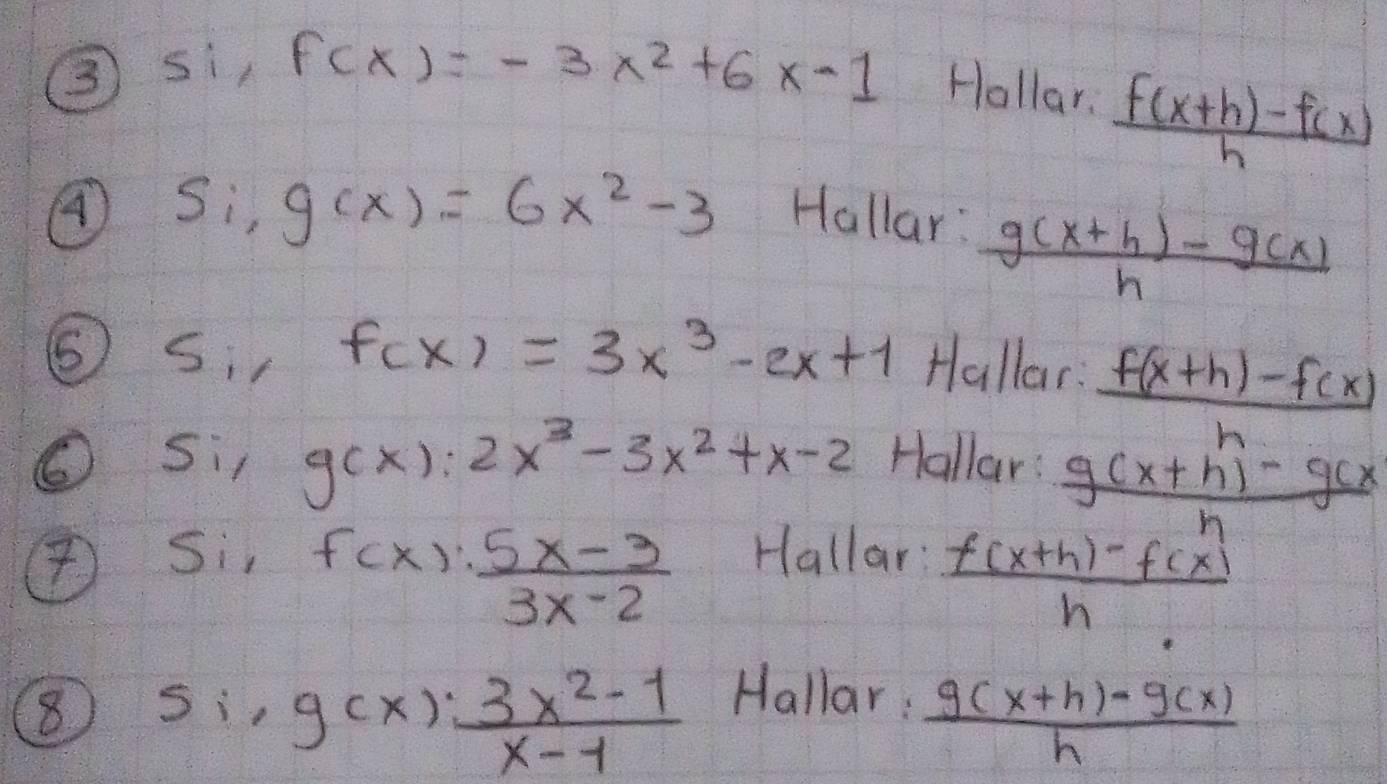 ③ Si, f(x) = - 3x² + 6x - 1 Hallar: f(x+h) - f(x) / h
④ Si, g(x) = 6x² - 3 Hallar: g(x+h) - g(x) / h
⑤ Si, f(x) = 3x³ - 2x + 1 Hallar: f(x+h) - f(x) / h
⑥ Si, g(x): 2x³ - 3x² + x - 2 Hallar: g(x+h) - g(x / h
⑦ Si, f(x): 5x - 3 / 3x - 2 Hallar: f(x+h) - f(x) / h
⑧ Si, g(x): 3x² - 1 / x - 1 Hallar: g(x+h) - g(x) / h